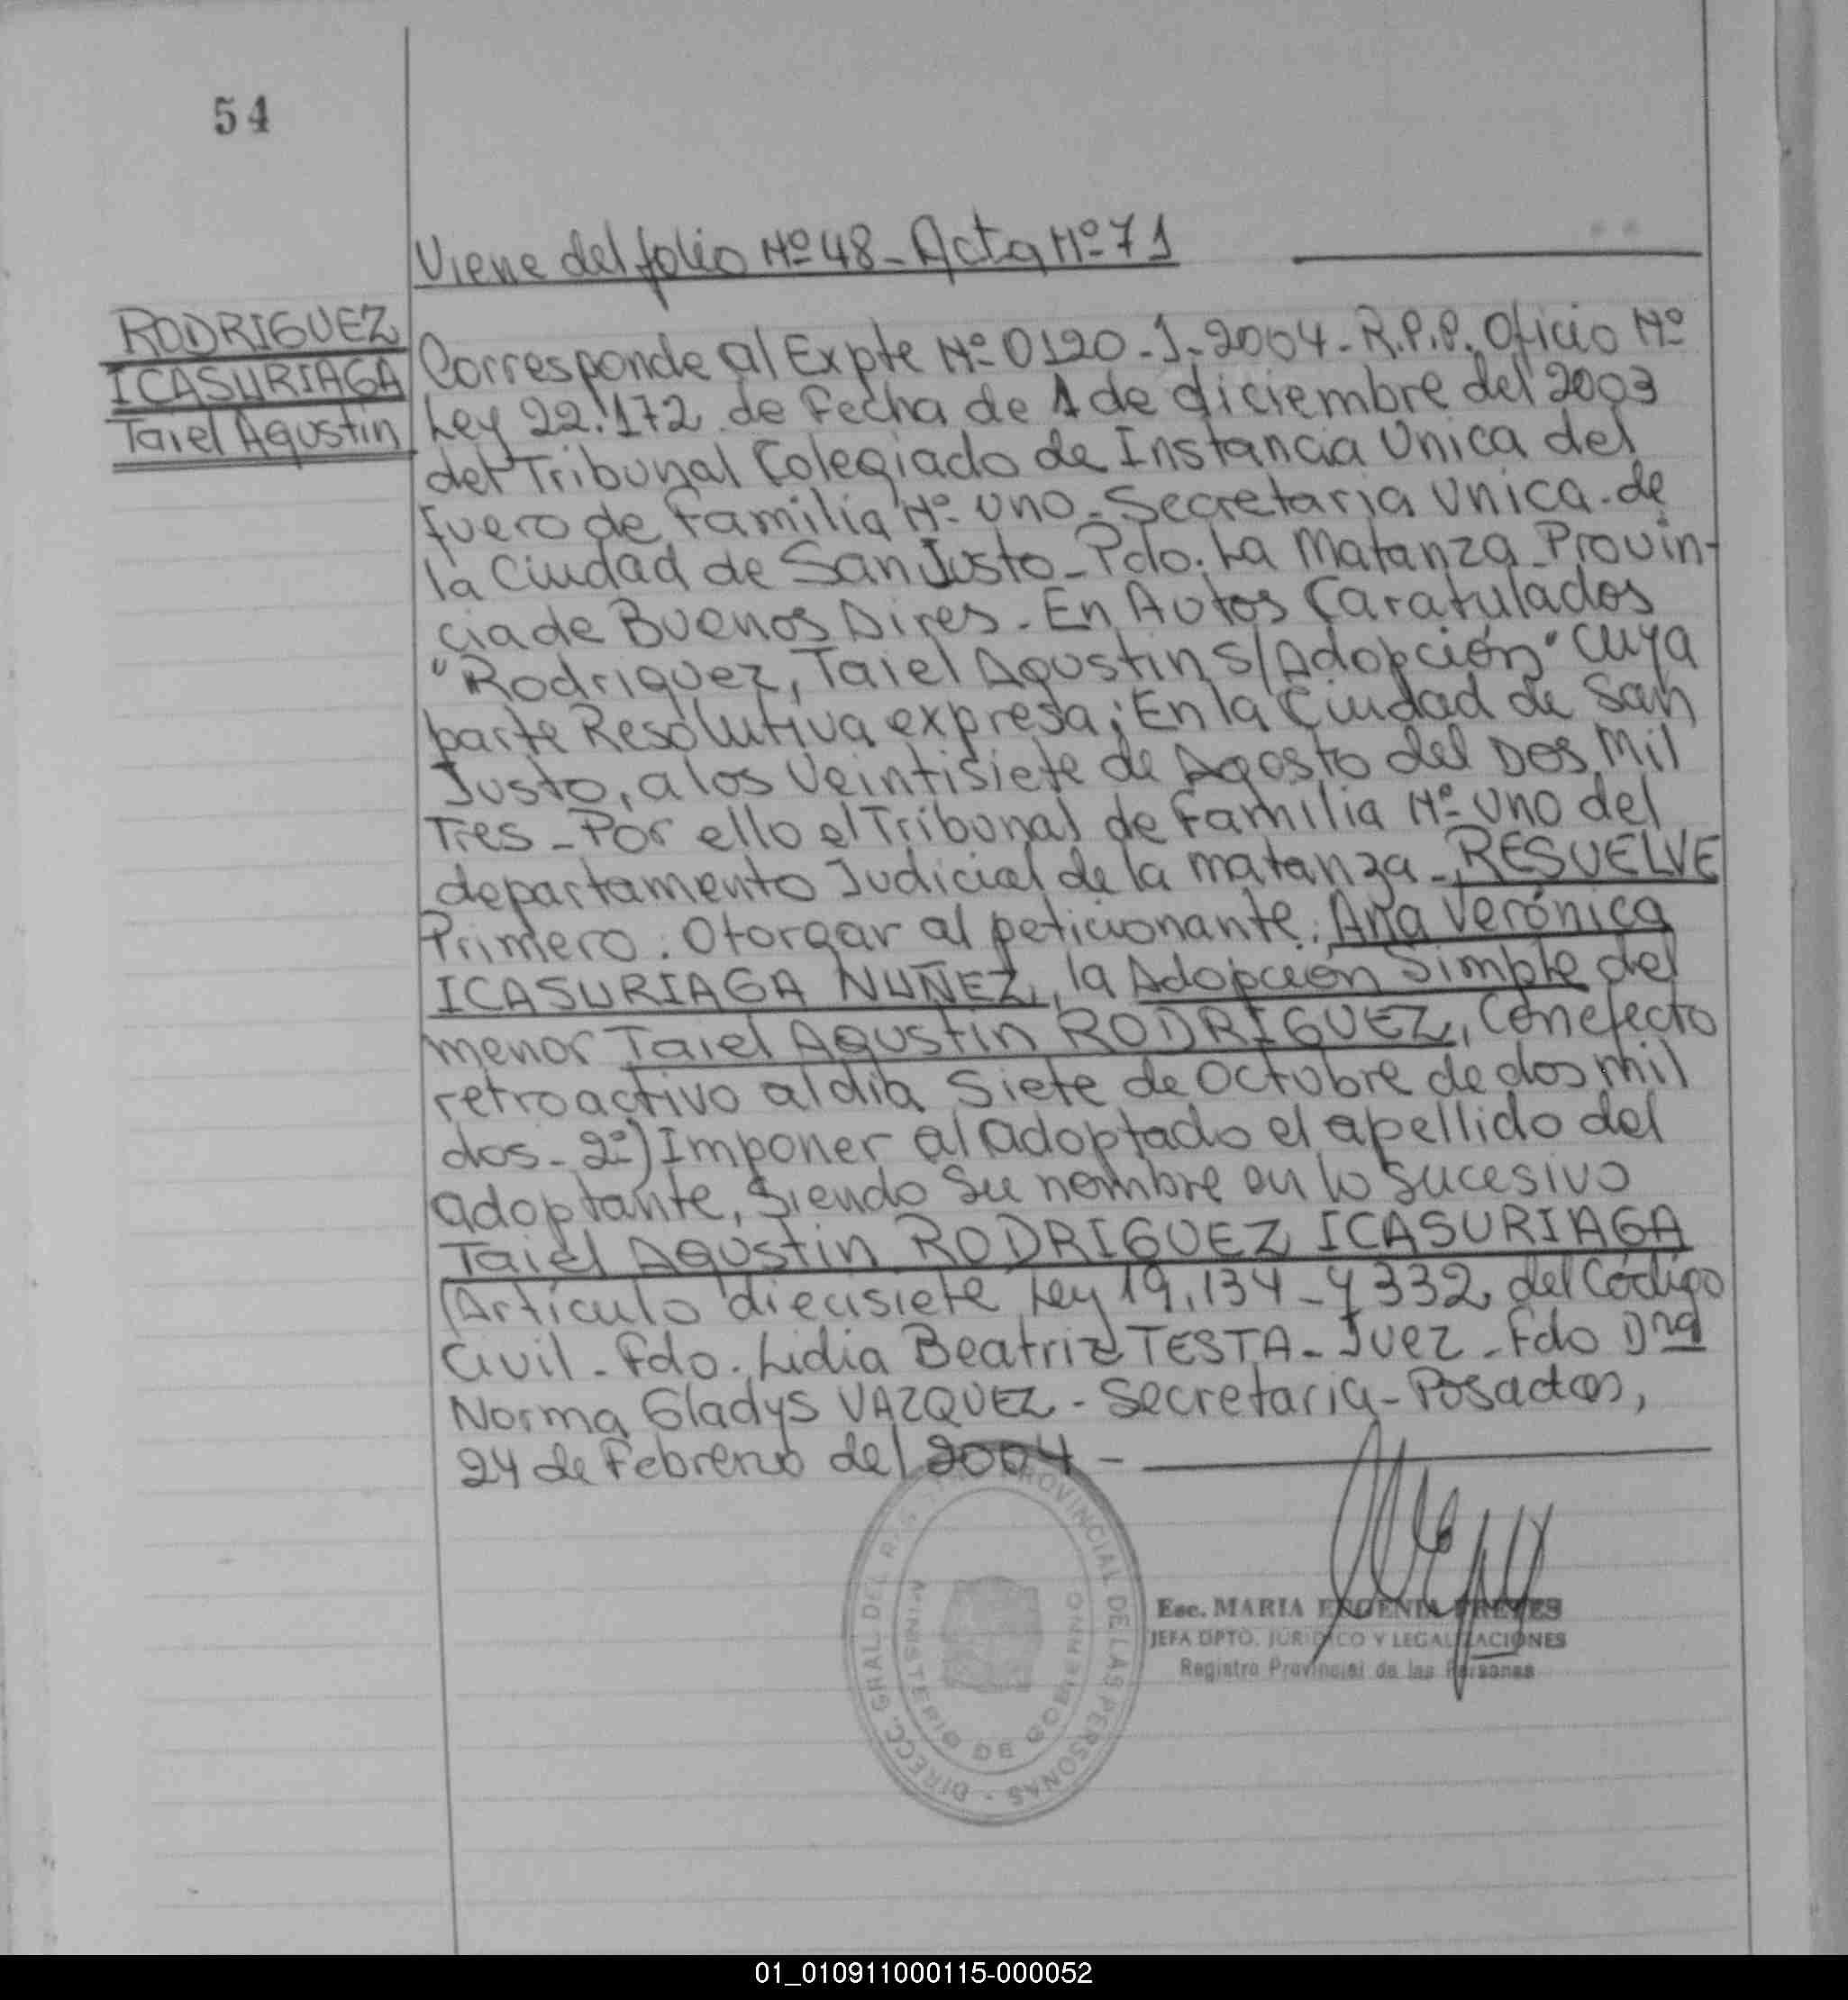 54
Viene del folio Nº 48 - Acta Nº 71
RODRIGUEZ
ICASURIAGA
Taiel Agustin
Corresponde al Expte Nº 0120-J-2004-R.P.P. Oficio Nº
Ley 22.172 de Fecha de 1 de diciembre del 2003
del Tribunal Colegiado de Instancia Unica del
fuero de Familia Nº Uno - Secretaria Unica - de
la Ciudad de San Justo - Pdo. La Matanza - Provin-
cia de Buenos Aires - En Autos Caratulados
"Rodriguez, Taiel Agustin S/Adopción" cuya
parte Resolutiva expresa; En la Ciudad de San
Justo, a los Veintisiete de Agosto del Dos Mil
Tres - Por ello el Tribunal de Familia Nº Uno del
departamento Judicial de la matanza - RESUELVE
Primero: Otorgar al peticionante: Ana Verónica
ICASURIAGA NUÑEZ, la Adopción Simple del
menor Taiel Agustin RODRIGUEZ, Con efecto
retroactivo al día Siete de Octubre de dos mil
dos - 2º) Imponer al adoptado el apellido del
adoptante, Siendo Su nombre en lo Sucesivo
Taiel Agustin RODRIGUEZ ICASURIAGA
(Artículo diecisiete Ley 19.134 - y 332 del Código
Civil - Fdo. Lidia Beatriz TESTA - Juez - Fdo Dra
Norma Gladys VAZQUEZ - Secretaria - Posadas,
24 de Febrero del 2004 -
DIRECC. GRAL. DEL REG. PROVINCIAL DE LAS PERSONAS -
MINISTERIO DE GOBIERNO
Esc. MARIA EUGENIA
JEFA DPTO. JURIDICO Y LEGALIZACIONES
Registro Provincial de las Personas
01_010911000115-000052